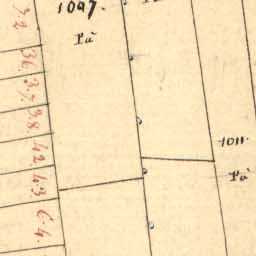 1047.
Pà
1011.
Pà
32
36.
37.
38.
42.
43.
64.